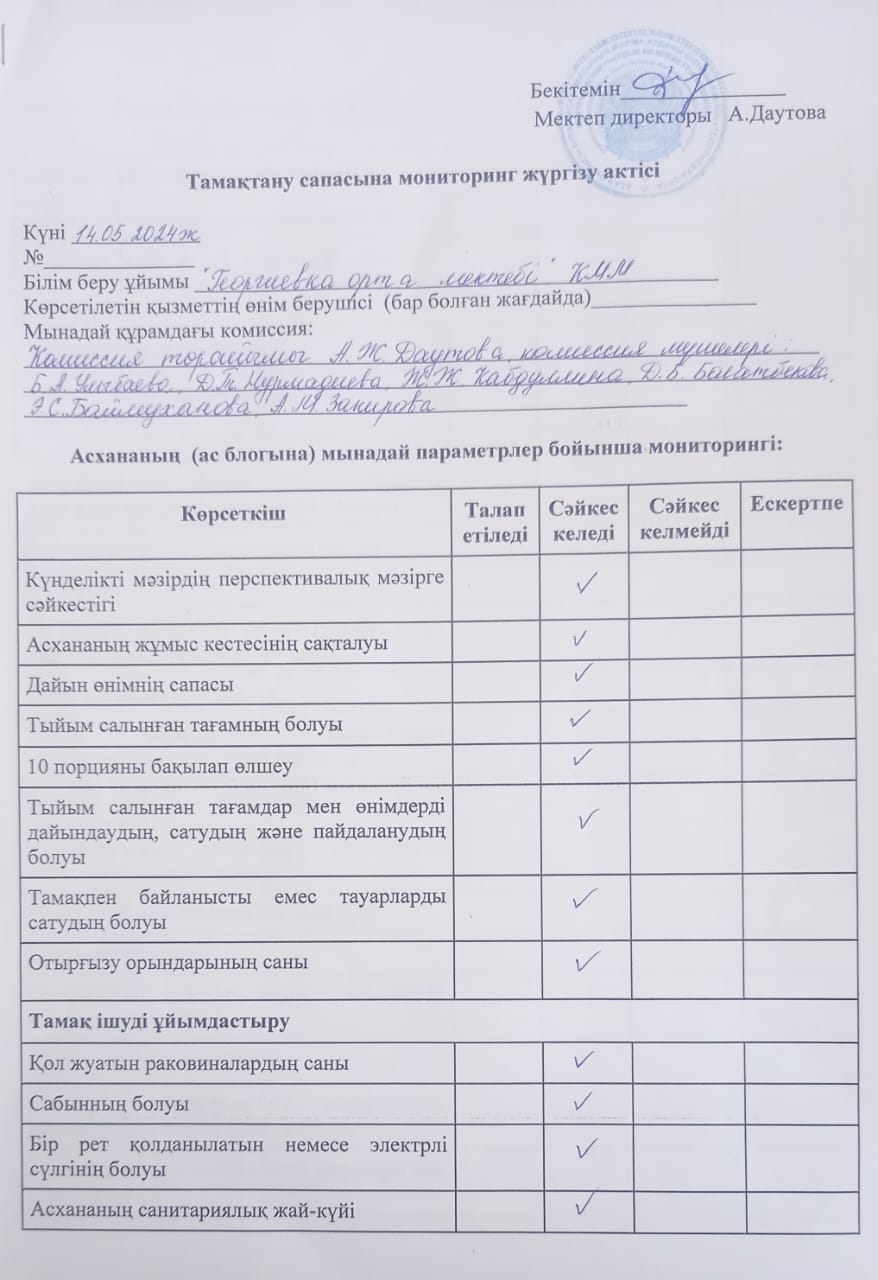 Бекітемін
Мектеп директоры А.Даутова
Тамақтану сапасына мониторинг жүргізу актісі
Күні 14.05 2024ж
№
Білім беру ұйымы "Георгиевка орта мектебі" КММ
Көрсетілетін қызметтің өнім берушісі (бар болған жағдайда)
Мынадай құрамдағы комиссия:
Комиссия торайымы А.Ж.Даутова, комиссия мүшелері:
Д.Т.Нурмадиева, Ж.Ж Кабдуллина, Д.Б.
Э.С.Баймуханова, А.М Закирова
Асхананың (ас блогына) мынадай параметрлер бойынша мониторингі:
Көрсеткіш Талап Сәйкес Сәйкес Ескертпе
етіледі келеді келмейді
Күнделікті мәзірдің перспективалық мәзірге ✓
сәйкестігі
Асхананың жұмыс кестесінің сақталуы ✓
Дайын өнімнің сапасы ✓
Тыйым салынған тағамның болуы ✓
10 порцияны бақылап өлшеу ✓
Тыйым салынған тағамдар мен өнімдерді
дайындаудың, сатудың және пайдаланудың ✓
болуы
Тамақпен байланысты емес тауарларды ✓
сатудың болуы
Отырғызу орындарының саны ✓
Тамақ ішуді ұйымдастыру
Қол жуатын раковиналардың саны ✓
Сабынның болуы ✓
Бір рет қолданылатын немесе электрлі ✓
сүлгінің болуы
Асхананың санитариялық жай-күйі ✓